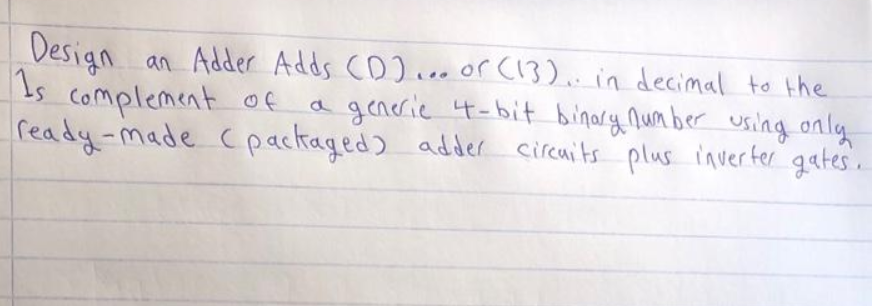 Design an Adder Adds (D)... or (13).. in decimal to the
1s complement of a generic 4-bit binary number using only
ready-made (packaged) adder circuits plus inverter gates.